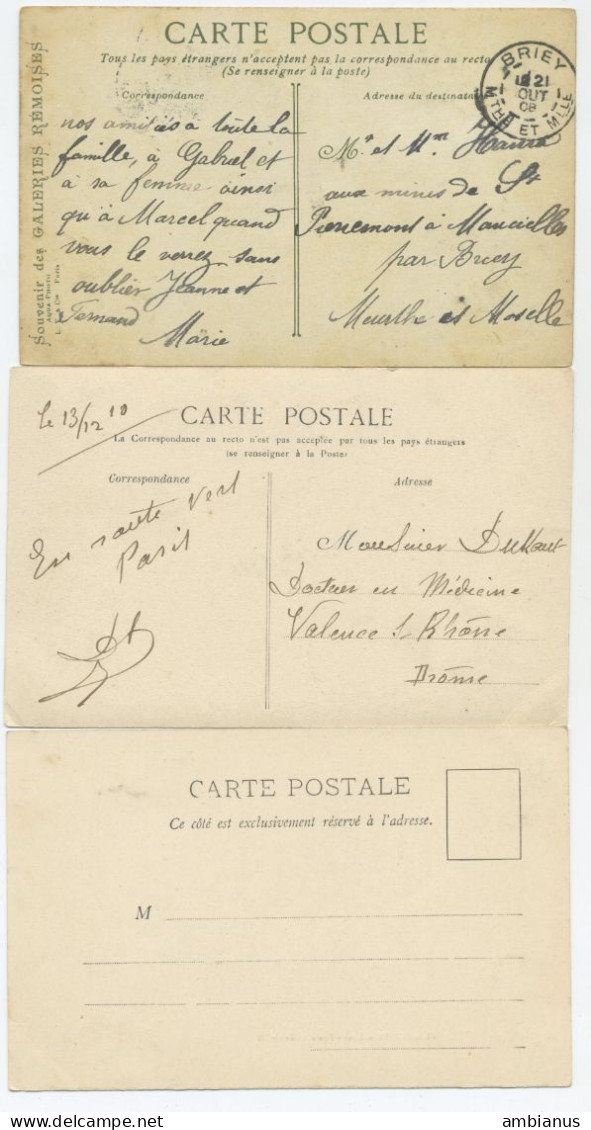 CARTE POSTALE
Tous les pays étrangers n'acceptent pas la correspondance au recto
(Se renseigner à la poste)
Correspondance
Adresse du destinataire
BRIEY
21
OUT
08
MTHE ET MLLE
Souvenir des GALERIES RÉMOISES
nos amitiés à toute la
famille, à Gabriel et
à sa femme ainsi
qu'à Marcel quand
vous le verrez sans
oublier Jeanne et
Fernand
Marie
Mr et Mme
aux mines de St
Pierremont à Mancielles
par Briey
Meurthe et Moselle
Le 13/12 10
CARTE POSTALE
La Correspondance au recto n'est pas acceptée par tous les pays étrangers
(se renseigner à la Poste)
Correspondance
Adresse
En route vers
Paris
Monsieur
Docteur en Médicine
Valence s/ Rhône
Drôme
CARTE POSTALE
Ce côté est exclusivement réservé à l'adresse.
M
ambianus